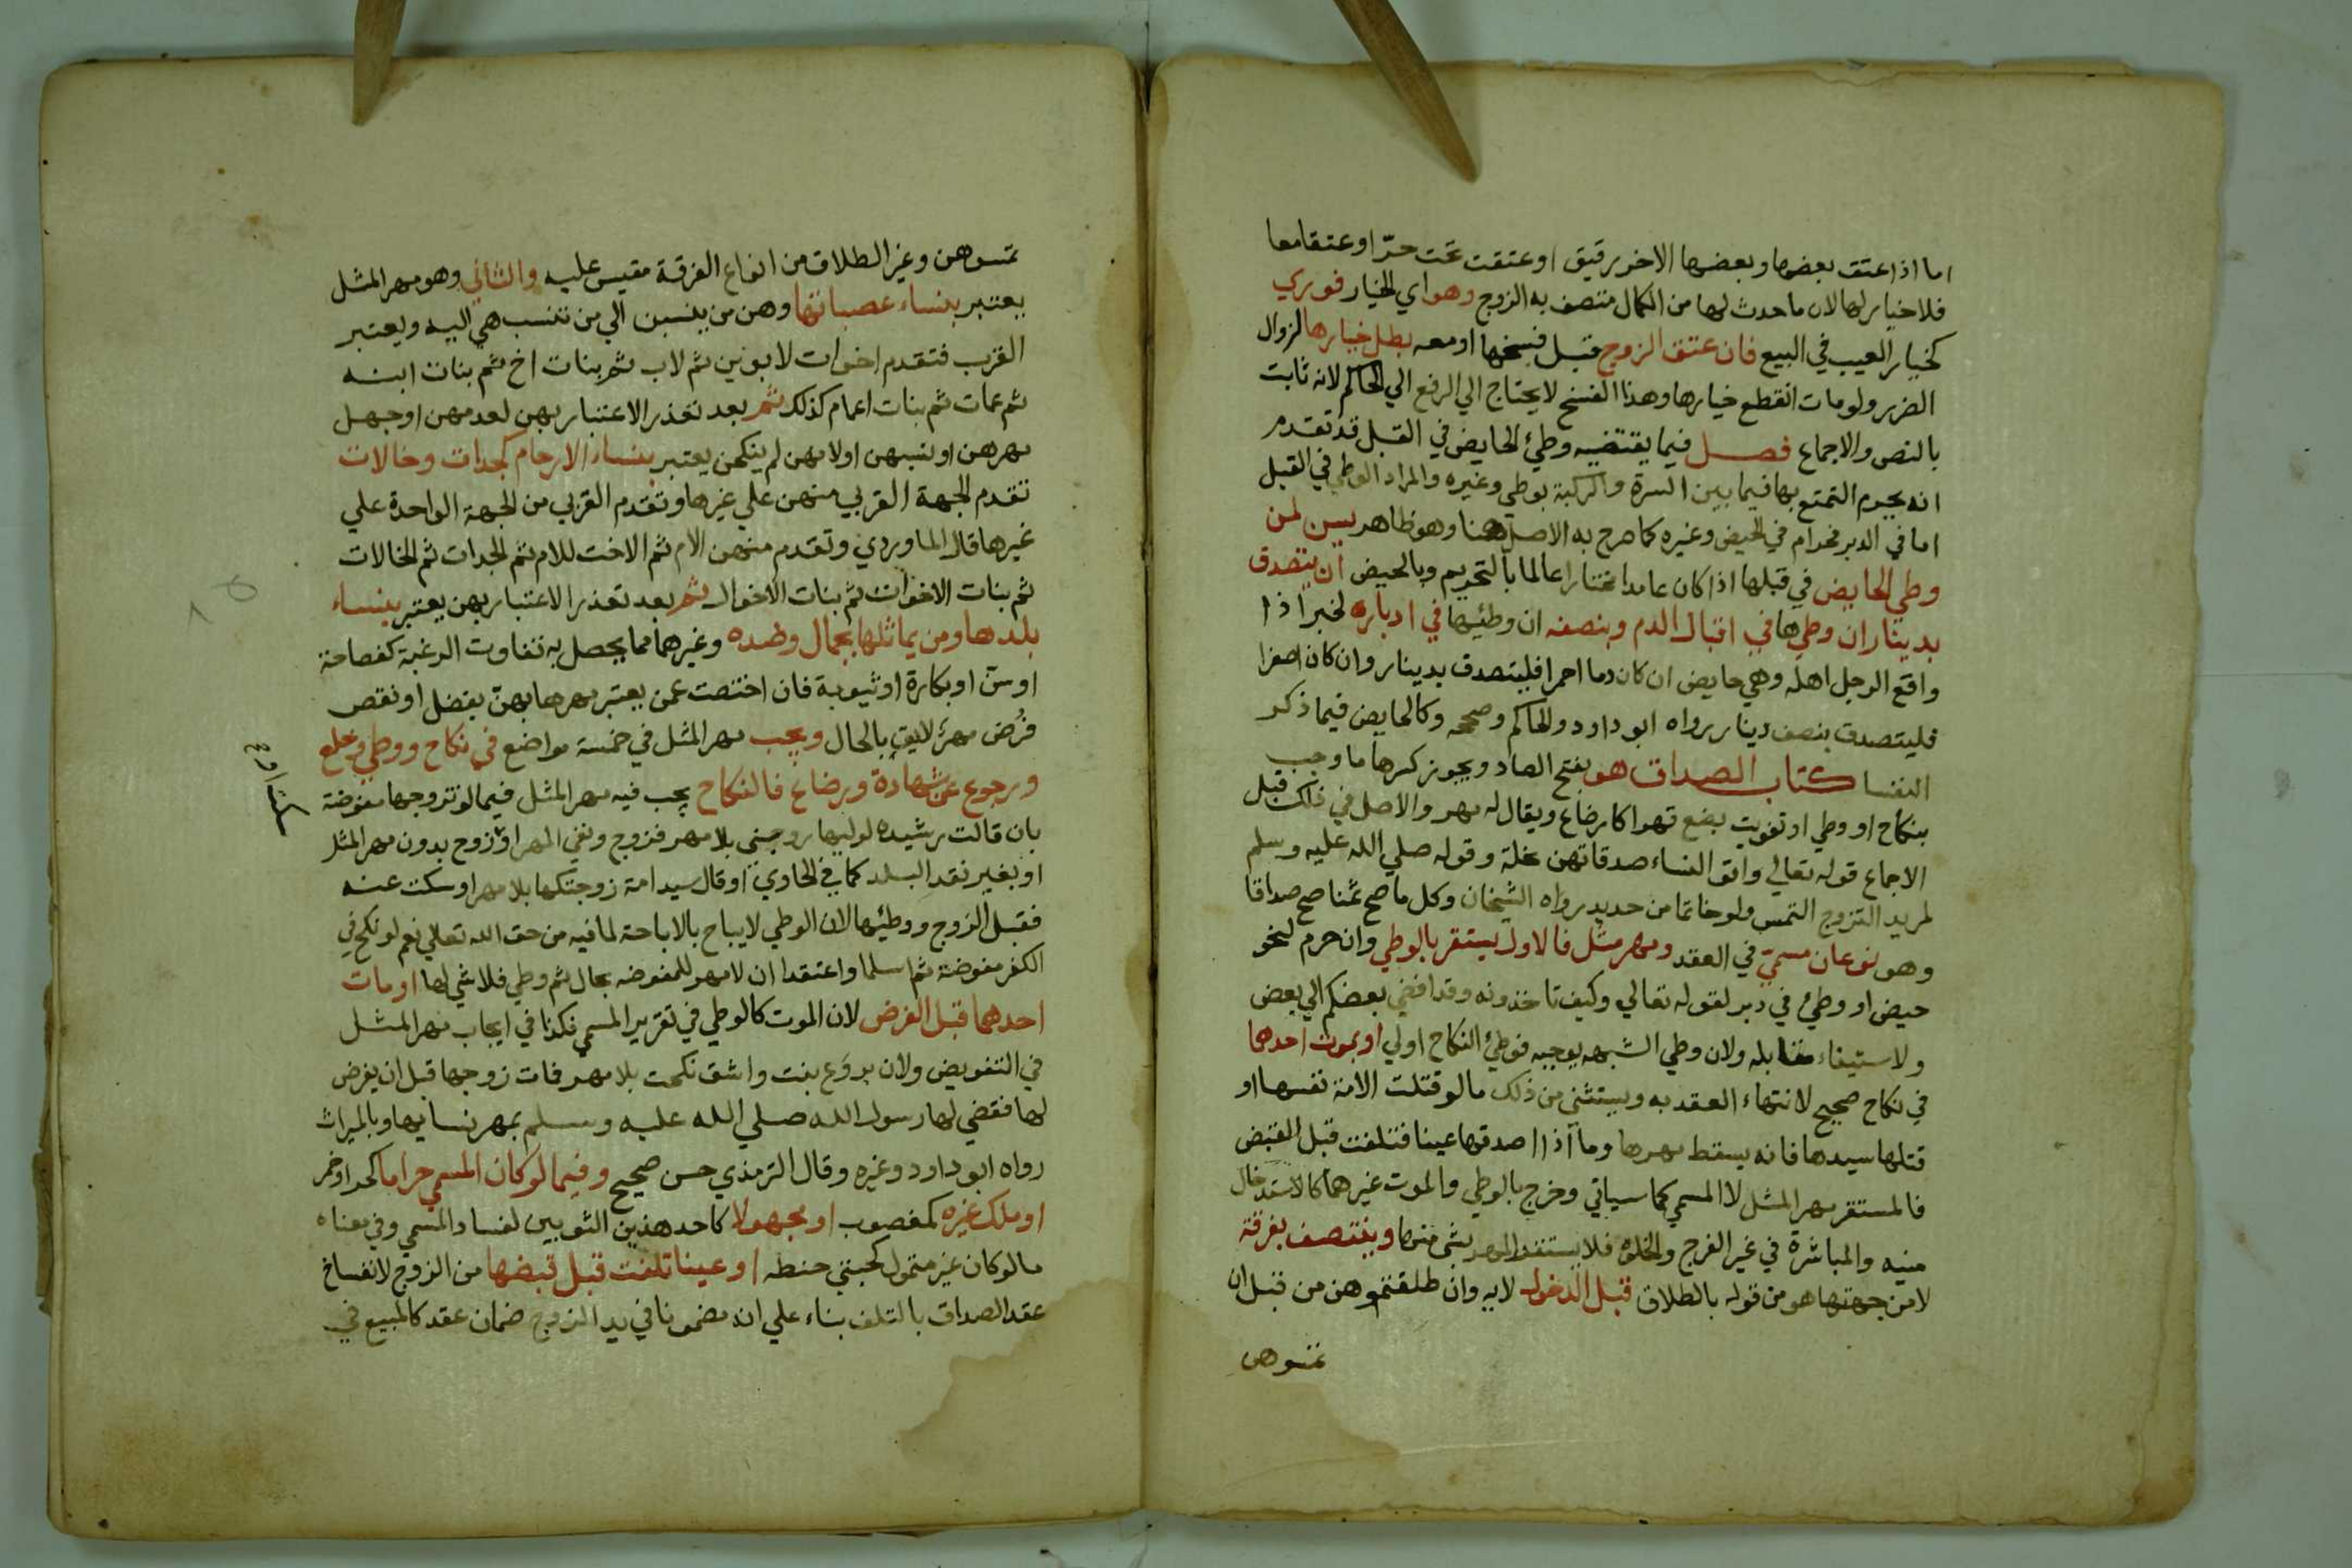 اما اذا عتق بعضها وبعضها الاخر رقيق او عتقت تحت حرّ او عتقا معا
فلا خيار لها لان ما حدث لها من الكمال متصف به الزوج وهو اي الخيار فوري
كخيار العيب في البيع فان عتق الزوج قبل فسخها او معه بطل خيارها لزوال
الضرر ولو مات انقطع خيارها وهذا الفسخ لا يحتاج الي الرفع الي الحاكم لانه ثابت
بالنص والاجماع فصل فيما يقتضيه وطئ الحايض في القبل قد تقدم
انه يحرم التمتع بها فيما بين السرة والركبة بوطي وغيره والمراد الوطي في القبل
اما في الدبر فحرام في الحيض وغيره كما صرح به الاصل هنا وهو ظاهر يسن لمن
وطي الحايض في قبلها اذا كان عامدا مختارا عالما بالتحريم وبالحيض ان يتصدق
بدينار ان وطيها في اقبال الدم وبنصفه ان وطئها في ادباره لخبر اذا
واقع الرجل اهله وهي حايض ان كان دما احمر فليتصدق بدينار وان كان اصفرا
فليتصدق بنصف دينار رواه ابو داود والحاكم وصححه وكالحايض فيما ذكر
النفسا كتاب الصداق هو بفتح الصاد ويجوز كسرها ما وجب
بنكاح او وطي او تفويت بضع قهرا كارضاع ويقال له مهر والاصل في ذلك قبل
الاجماع قوله تعالي واتو النساء صدقاتهن نحلة وقوله صلي الله عليه وسلم
لمريد التزوج التمس ولو خاتما من حديد رواه الشيخان وكل ما صح ثمنا صح صداقا
وهو نوعان مسميّ في العقد ومهر مثل فالاول يستقر بالوطي وان حرم لنحو
حيض او وطئ في دبر لقوله تعالي وكيف تاخذونه وقد افضي بعضكم الي بعض
ولاستيفاء مقابله ولان وطي الشبهه يوجبه فوطئ النكاح اولي او بموت احدهما
في نكاح صحيح لانتهاء العقد به ويستثني من ذلك ما لو قتلت الامة نفسها او
قتلها سيدها فانه يسقط مهرها وما اذا اصدقها عينا فتلفت قبل القبض
فالمستقر مهر المثل لا المسمي كما سياتي وخرج بالوطي والموت غيرهما كالاستدخال
منيه والمباشرة في غير الفرج والخلوه فلا يستقر المهر بشي منها ويتنصف بفرقة
لا من جهتها هو من قوله بالطلاق قبل الدخول لايه وان طلقتموهن من قبل ان
تمسوهن
تمسوهن وغير الطلاق من انواع الفرقة مقيس عليه والثاني وهو مهر المثل
يعتبر بنساء عصباتها وهن من ينسبن الي من تنسب هي اليه ويعتبر
القرب فتقدم اخوات لابوين ثم لاب ثم بنات اخ ثم بنات ابنه
ثم عمات ثم بنات اعمام كذلك ثم بعد تعذر الاعتبار بهن لعدمهن او جهل
مهرهن او نسبهن او لانهن لم ينكحن يعتبر بنساء الارحام كجدات وخالات
تقدم الجهة القربي منهن علي غيرها وتقدم القربي من الجهة الواحدة علي
غيرها قال الماوردي وتقدم منهن الام ثم الاخت للام ثم الجدات ثم الخالات
ثم بنات الاخوات ثم بنات الاخوال ثم بعد تعذر الاعتبار بهن يعتبر بنساء
بلدها ومن يماثلها بجمال وضده وغيرهما مما يحصل به تفاوت الرغبة كفصاحة
او سنّ او بكارة او ثيوبة فان اختصت عمن يعتبر مهرها بهنّ بفضل او نقص
فُرض مهرٌ لايق بالحال ويجب مهر المثل في خمسة مواضع في نكاح ووطي وخلع
ورجوع عن شهادة ورضاع فالنكاح يجب فيه مهر المثل فيما لو تزوجها مفوضة
بان قالت رشيده لوليها زوجني بلا مهر فزوج ونفي المهر او زوج بدون مهر المثل
او بغير نقد البلد كما في الحاوي او قال سيد امة زوجتكها بلا مهر او سكت عنه
فقبل الزوج ووطئها لان الوطي لا يباح بالاباحة لما فيه من حق الله تعالي نعم لو نكح في
الكفر مفوضة ثم اسلما واعتقدا ان لا مهر للمفوضه بحال ثم وطي فلا شي لها او مات
احدهما قبل الفرض لان الموت كالوطي في تقرير المسمي فكذا في ايجاب مهر المثل
في التفويض ولان بروَع بنت واشق نكحت بلا مهر فمات زوجها قبل ان يفرض
لها فقضي لها رسول الله صلي الله عليه وسلم بمهر نسايها وبالميراث
رواه ابو داود وغيره وقال الترمذي حسن صحيح وفيما لو كان المسمي حراما كحر او خمر
او ملك غيره كمغصوب او مجهولا كاحد هذين الثوبين لفساد المسمي وفي معناه
ما لو كان غير متمول كحبتي حنطه او عينا تلفت قبل قبضها من الزوج لانفساخ
عقد الصداق بالتلف بناء علي انه مضمونا في يد الزوج ضمان عقد كالمبيع في